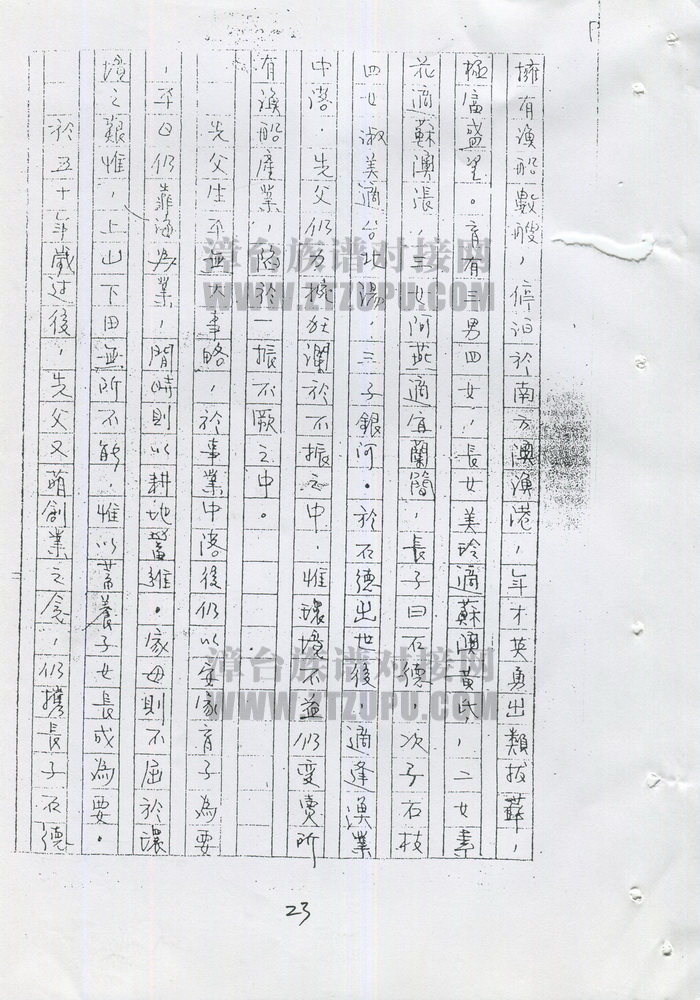 擁有漁船數艘，停泊於南方澳漁港，年才英勇出類拔蘇，
極富盛望。育有三男四女，長女美玲適蘇澳黃氏，二女素
花適蘇澳張，三女阿燕適宜蘭簡，長子曰石德，次子石枝
四女淑美適台北湯，三子銀河。於石德出世後，適逢漁業
中落，先父仍力挽狂瀾於不振之中，惟環境不益仍變賣所
有漁船產業，陷於一振不厥之中。
先父生平無大事略，於事業中落後仍以安家育子為要
，平日仍靠海為業，閒時則以耕地營維。家母則不屈於環
境之艱惟，上山下田無所不能，惟以蓄養子女長成為要。
於五十年歲过後，先父又萌創業之念，仍攜長子石德
23
漳台族谱对接网
WWW.ZTZUPU.COM
漳台族谱对接网
WWW.ZTZUPU.COM